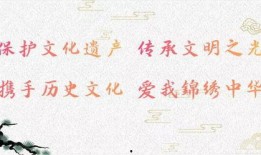 保护文化遗产 传承文明之光
携手历史文化 爱我錦绣中华